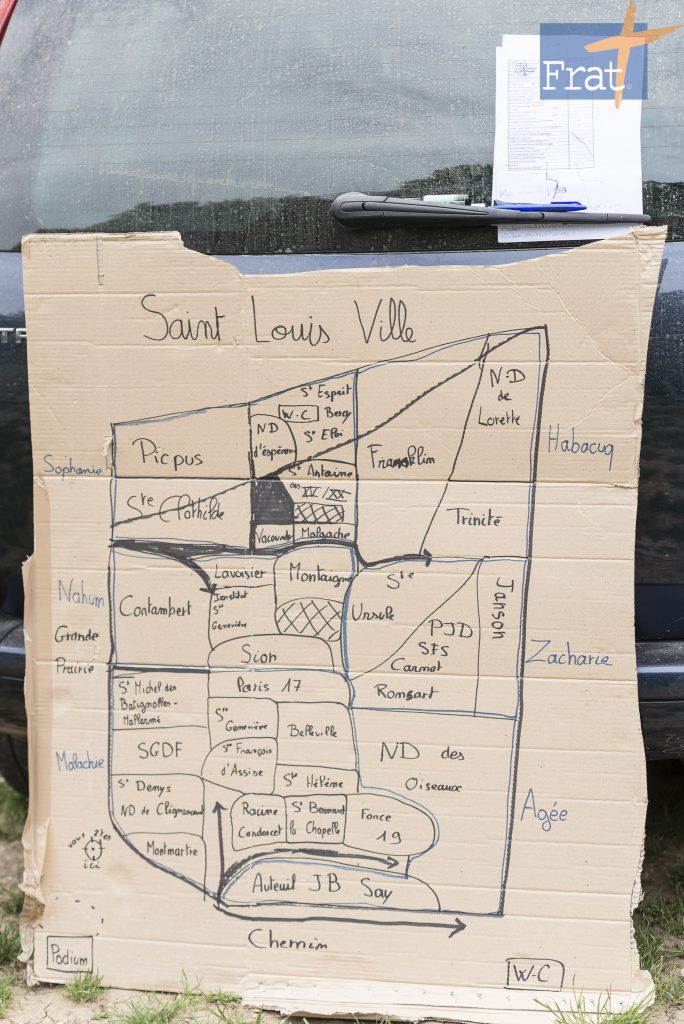 Frat
Saint Louis Ville
St Esprit
W-C Bercy
ND
d'espérance
St Eloi
N-D
de
Lorette
Picpus
Franklin
Habacuq
Sophonie
St Antoine
des XV/XX
Ste Clothilde
Trinité
Vacourt
Malgache
Lavoisier
Montaigne
Ste
Ursule
Nahum
Contambert
Institut
Ste
Geneviève
Janson
PJD
SFS
Carnot
Grande
Prairie
Sion
Zacharie
St Michel des
Batignolles-
Mallarmé
Paris 17
Ronsart
Ste
Geneviève
Belleville
Malachie
SGDF
St François
d'Assise
ND des
Oiseaux
Ste Hélène
St Denys
ND de Clignancourt
Racine
Condorcet
St Bernard
la Chapelle
Fonce
19
Agée
vous êtes
ici
Montmartre
Auteuil JB Say
Chemin
Podium
W-C